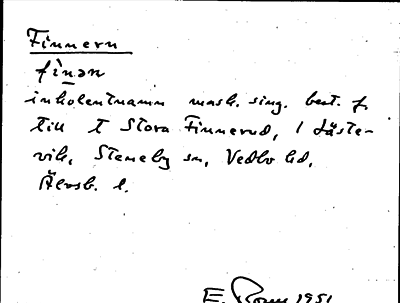 Finnern
finən
inkolentnamn mask. sing. best. f.
till t Stora Finnerud, 1 Läste-
vik, Steneby sn, Vedbo hd,
Älvsb. l.
E. 1951